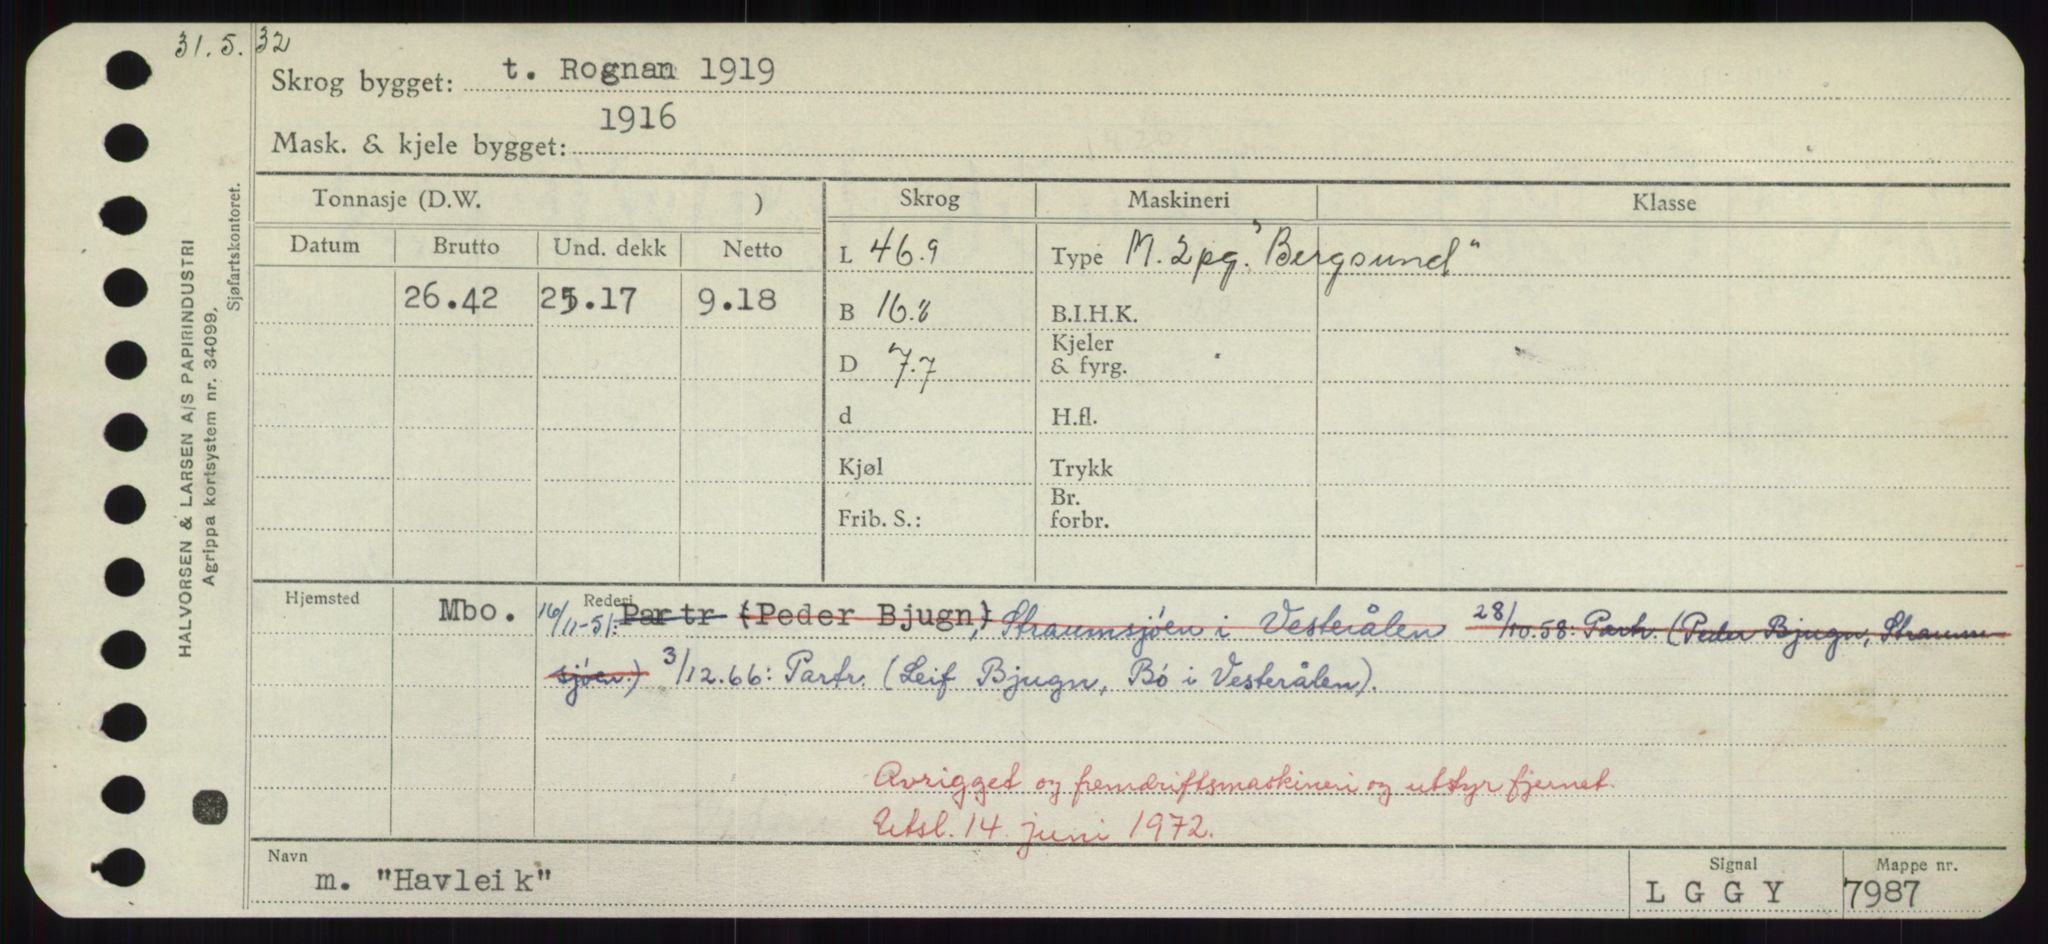 31.5.32
Skrog bygget: t. Rognan 1919
Mask. & kjele bygget: 1916
Tonnasje (D.W. )
Skrog Maskineri Klasse
Datum Brutto Und. dekk Netto
26.42 25.17 9.18
L 46.9
B 16.8
D 7.7
d
Kjøl
Frib. S.:
Type M. 2 pg. "Bergsund"
B.I.H.K.
Kjeler
& fyrg.
H.fl.
Trykk
Br.
forbr.
Hjemsted Mbo.
Rederi
16/11-51: Partr (Peder Bjugn), Straumsjøen i Vesterålen 28/10.58: Partr. (Peder Bjugn, Straum-
sjøen.) 3/12.66: Partr. (Leif Bjugn, Bø i Vesterålen).
Avrigget og fremdriftsmaskineri og utstyr fjernet.
14. juni 1972.
Navn m. "Havleik"
Signal LGGY
Mappe nr. 7987
HALVORSEN & LARSEN A/S PAPIRINDUSTRI
Agrippa kortsystem nr. 34099.
Sjøfartskontoret.